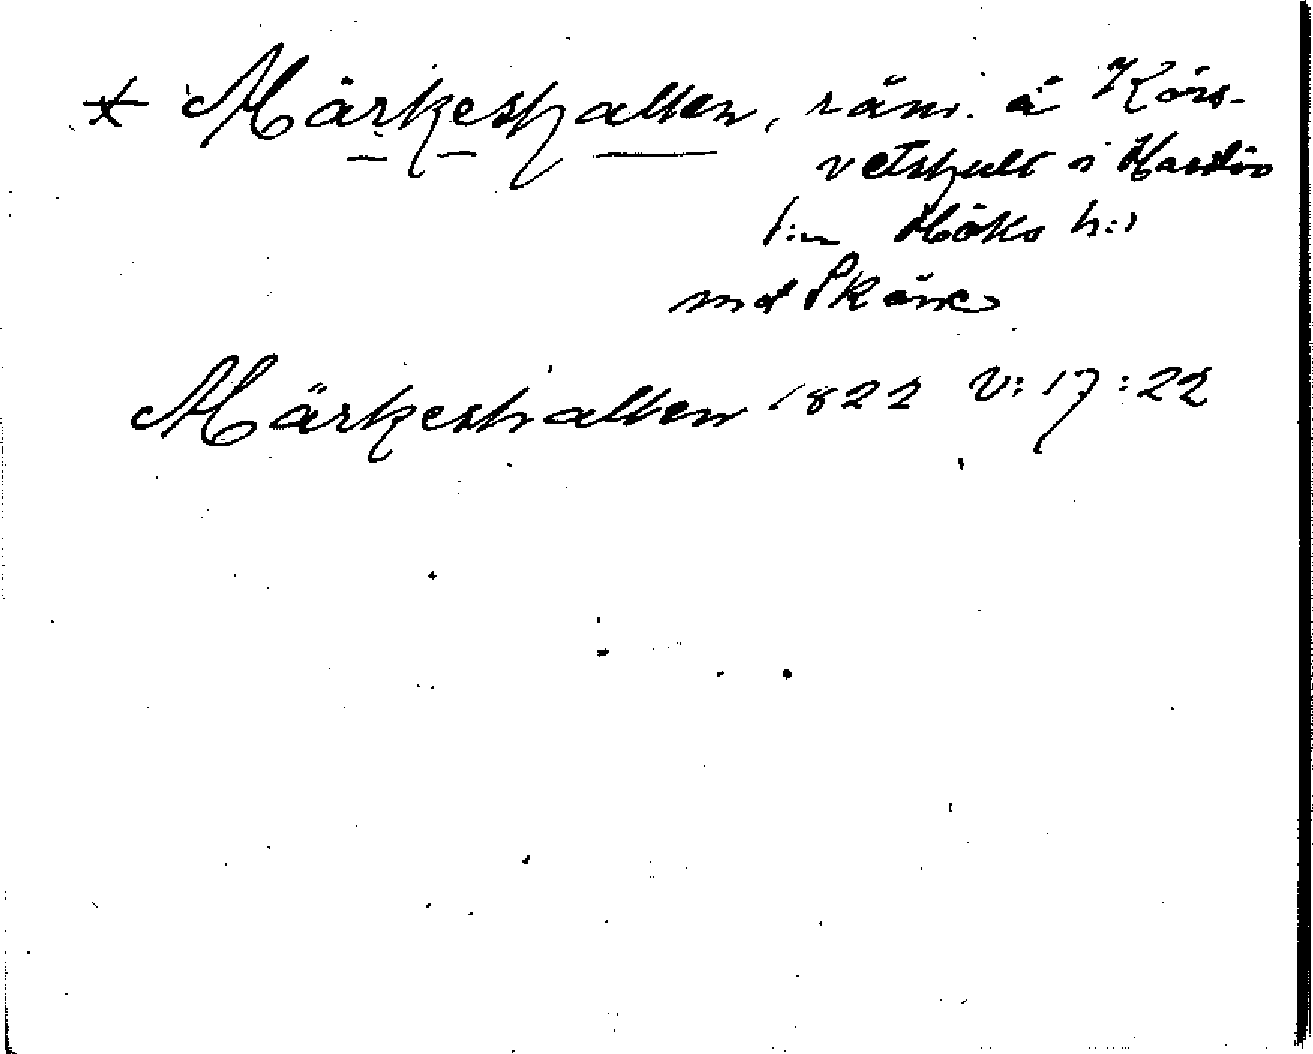 * Märkeshallen, räm. å Körs-
vetshult i Hasslöv
s:n Höks h:d
mot Skåne
Märkeshallen 1822 V:17:22